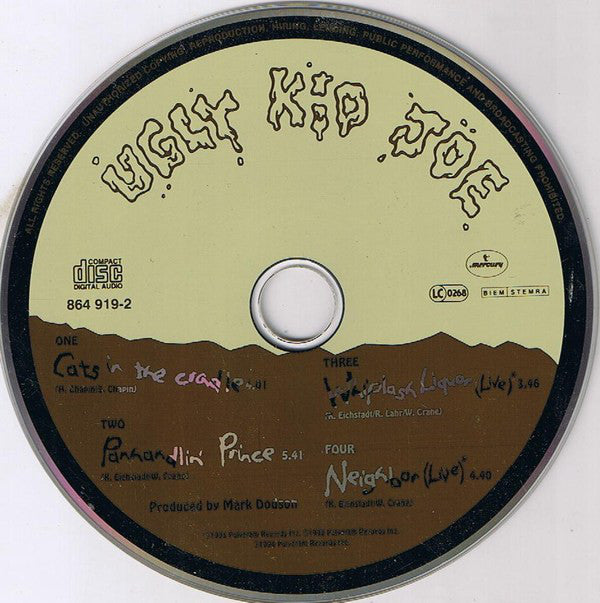 ALL RIGHTS RESERVED. UNAUTHORIZED COPYING, REPRODUCTION, HIRING, LENDING, PUBLIC PERFORMANCE AND BROADCASTING PROHIBITED.
UGLY KID JOE
COMPACT
disc
DIGITAL AUDIO
864 919-2
mercury
LC 0268
BIEM STEMRA
ONE
Cats in the cradle 4.01
(H. Chapin/S. Chapin)
TWO
Panhandlin' Prince 5.41
(K. Eichstadt/W. Crane)
Produced by Mark Dodson
THREE
Whiplash Liquor (Live)* 3.46
(K. Eichstadt/R. Lahr/W. Crane)
FOUR
Neighbor (Live)* 4.40
(K. Eichstadt/W. Crane)
PolyGram Records Inc. PolyGram Records Inc.
PolyGram Records Inc.